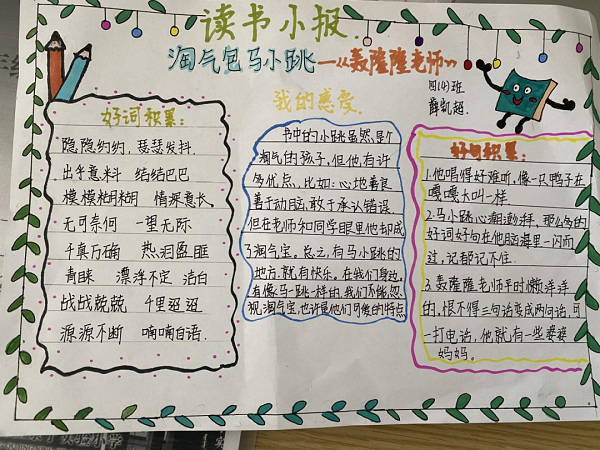 读书小报.
淘气包马小跳—《轰隆隆老师》
四(4)班
薛凯超.
好词积累:
隐隐约约, 瑟瑟发抖.
出乎意料 结结巴巴
模模糊糊 情深意长.
无可奈何 一望无际
千真万确 热泪盈眶
青睐 漂浮不定 洁白
战战兢兢 千里迢迢
源源不断 喃喃自语.
我的感受
书中的小跳虽然是个
淘气的孩子,但他有许
多优点,比如:心地善良
善于动脑,敢于承认错误.
但在老师和同学眼里他却成
了淘气宝。总之,有马小跳的
地方,就有快乐。在我们身边,
有像马小跳一样的,我们不能忽
视淘气宝,也许是他们可爱的特点
好句积累:
1.他唱得好难听,像一只鸭子在
嘎嘎大叫一样
2.马小跳心潮澎拜,那么多的
好词好句在他脑海里一闪而
过,记都记不住
3.轰隆隆老师平时懒洋洋
的,恨不得三句话变成两句话,可
一打电话,他就有一些婆婆
妈妈.